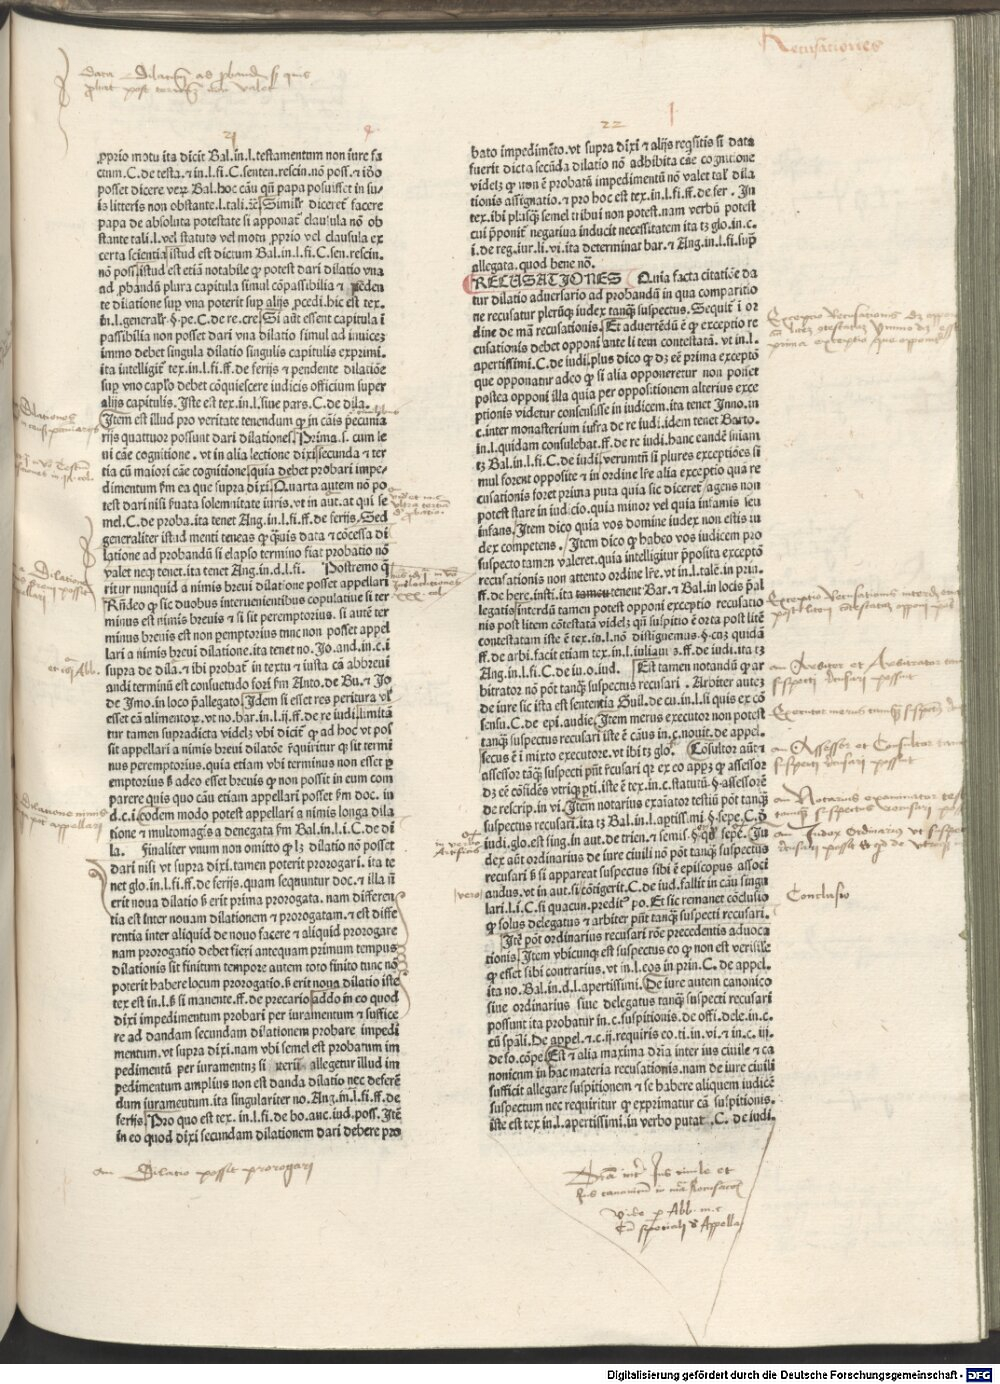 Recusationes
21
22
ꝓprio motu ita dicit Bal.in.l.testamentum non iure fa
ctum.C.de testa.⁊ in.l.fi.C.senten.rescin.nõ poss.⁊ iõo
posset dicere veꝝ Bal.hoc cãu ꝙñ papa posuisset in su⸗
is litteris non obstante.l.tali.
Similr̃ diceret facere
papa de absoluta potestate si apponat clausula nõ ob
stante tali.l.vel statuto vel motu ꝓprio vel clausula ex
certa scientia istud est dictum Bal.in.l.fi.C.sen.rescin.
nõ poss.istud est etiã notabile ꝙ potest dari dilatio vna
ad ꝓbandũ plura capitula simul cõpassibilia ⁊ pẽden
te dilatione sup vna poterit sup alijs ꝓcedi.hic est tex.
in.l.generalr̃.§.pe.C.de re.cre.Si aũt essent capitula ĩ
passibilia non posset dari vna dilatio simul ad inuicez
immo debet singula dilatio singulis capitulis exprimi.
ita intelligit tex.in.l.fi.ff.de ferijs ⁊ pendente dilatiõe
sup vno caplo debet cõquiescere iudicis officium super
alijs capitulis.Iste est tex.in.l.siue pars.C.de dila.
Item est illud pro veritate tenendum ꝙ in cãis pecunia
rijs quattuor possunt dari dilationes.Prima.s.cum le
ni cãe cognitione.vt in alia lectione dixi secunda ⁊ ter
tia cũ maiori cãe cognitione quia debet probari impe⸗
dimentum ẞm ea que supra dixi.Quarta autem nõ po
test dari nisi ẞuata solemnitate iuris.vt in aut.at qui se
mel.C.de proba.ita tenet Ang.in.l.fi.ff.de ferijs.Sed
generaliter istud menti teneas ꝙ ꝙ̃uis data ⁊ cõcessa di
latione ad probandũ si elapso termino fiat probatio nõ
valet neqꝫ tenet.ita tenet Ang.in.d.l.fi. Postremo q̃
ritur nunquid a nimis breui dilatione posset appellari
Rñdeo ꝙ sic duobus interuenientibus copulatiue si ter
minus est nimis breuis ⁊ si sit peremptorius.si autẽ ter
minus breuis est non peremptorius tunc non posset appel
lari a nimis breui dilatione.ita tenet no.Jo.and.in.c.i
supra de dila.⁊ ibi probat̃ in textu ⁊ iusta cã abbreui
andi terminũ est consuetudo fori ẞm Anto.de Bu.⁊ Jo
de Imo.in loco p̃allegato Idem si esset res peritura vl̃
esset cã alimentoꝝ.vt no.bar.in.l.ij.ff.de re iudi.limita
tur tamen supradicta videlz vbi dicit̃ ꝙ ad hoc vt pos
sit appellari a nimis breui dilatõe req̃ritur ꝙ sit termi
nus peremptorius.quia etiam vbi terminus non esset p
emptorius ẞ adeo esset breuis ꝙ non possit in eum com
parere quis quo cãu etiam appellari posset ẞm doc. in
d.c.i.eodem modo potest appellari a nimis longa dila
tione ⁊ multomagis a denegata ẞm Bal.in.l.i.C.de di
la. Finaliter vnum non omitto ꝙ lz dilatio nõ posset
dari nisi vt supra dixi.tamen poterit prorogari. ita te
net glo.in.l.fi.ff.de ferijs.quam sequuntur doc.⁊ illa ñ
erit noua dilatio ẞ erit prima prorogata. nam differen
tia est inter nouam dilationem ⁊ prorogatam.⁊ est diffe
rentia inter aliquid de nouo facere ⁊ aliquid prorogare
nam prorogatio debet fieri antequam primum tempus
dilationis sit finitum tempore autem toto finito tunc nõ
poterit habere locum prorogatio.ẞ erit noua dilatio iste
tex est in.l.ẞ si manente.ff.de precario addo in eo quod
dixi impedimentum probari per iuramentum ⁊ suffice
re ad dandam secundam dilationem probare impedi
mentum.vt supra dixi.nam vbi semel est probatum im
pedimentũ per iuramentnz si iterũ allegetur illud im
pedimentum amplius non est danda dilatio nec deferẽ
dum iuramentum.ita singulariter no.Ang.in.l.fi.ff.de
ferijs.Pro quo est tex. in.l.fi.de bo.auc.iud.poss.Itẽ
in eo quod dixi secundam dilationem dari debere pro
an Dilatio possit prorogari
bato impedimẽto.vt supra dixi ⁊ alijs reqsitis si data
fuerit dicta secũda dilatio nõ adhibita cãe cognitione
videlz ꝙ non ẽ probatũ impedimentũ nõ valet tal̃ dila
tionis assignatio.⁊ pro hoc est tex.in.l.fi.ff.de fer. In
tex.ibi plusq̃ semel tribui non potest.nam verbũ potest
cui p̃ponit̃ negatiua inducit necessitatem ita tz glo.in.c.
i.de reg.iur.li.vi.ita determinat bar.⁊ Ang.in.l.fi.sup̃
allegata.quod bene nõ.
RECUSATIONES Quia facta citatiõe da
tur dilatio aduersario ad probandũ in qua comparitio
ne recusatur plerũqꝫ iudex tanq̃ suspectus.Sequit̃ ĩ or
dine de mã recusationis.Et aduertẽdũ ẽ ꝙ exceptio re
cusationis debet opponi ante li tem contestatã. vt in.l.
apertissimi.C.de iudi.plus dico ꝙ dz eẽ prima exceptõ
que opponatur adeo ꝙ si alia opponeretur non posset
postea opponi illa quia per oppositionem alterius exce
ptionis videtur consensisse in iudicem.ita tenet Inno.in
c.inter monasterium iufra de re iudi.idem tenet Barto.
in.l.quidam consulebat.ff.de re iudi.hanc eandẽ sniam
tz Bal.in.l.fi.C.de iudi.verumtñ si plures exceptiões si
mul forent opposite ⁊ in ordine lr̃e alia exceptio quã re
cusationis foret prima puta quia sic diceret agens non
potest stare in iudicio.quia minor vel quia infamis seu
infans.Item dico quia vos domine iudex non estis iu
dex competens. Item dico ꝙ habeo vos iudicem pro
suspecto tamen valeret.quia intelligitur p̃posita exceptõ
recusationis non attento ordine lr̃e.vt in.l.talẽ.in prin.
ff.de here.insti.ita tenent Bar.⁊ Bal.in locis p̃al
legatis interdũ tamen potest opponi exceptio recusatio
nis post litem cõtestatã videlz qñ suspitio ẽ orta post litẽ
contestatam iste ẽ tex.in.l.nõ distinguemus.§.cnz quidã
ff.de arbi.facit etiam tex.in.l.iuliani⁹.ff.de iudi.ita tz
Ang.in.l.fi.C.de in.o.iud. Est tamen notandũ ꝙ ar
bitrator nõ põt tanq̃ suspectus recusari. Arbiter autez
de iure sic ista est sententia Guil.de cu.in.l.si quis ex cõ
sensu.C.de epi.audie.Item merus executor non potest
tanq̃ suspectus recusari iste ẽ cãus in.c.nouit.de appel.
secus ẽ i mixto executore.vt ibi tz glo. Cõsultor aũt ⁊
assessor tãq̃ suspecti pñt recusari qr ex eo appꝫ ꝙ assessor
dz eẽ cõsidẽs vtriqꝫ pti.iste ẽ tex.in.c.statutũ.§.assessorẽ
de rescrip.in vi.Item notarius exaiator testiũ põt tanq̃
suspectus recusari.ita tz Bal.in.l.aptissimi.§.sepe.C.d̃
iudi.glo.est sing.in aut.de trien.⁊ semis.§.qr̃ sepe. Ju
dex aũt ordinarius de iure ciuili nõ põt tanq̃ suspectus
recusari ẞ si appareat suspectus sibi ẽ episcopus associ
andus.vt in aut.si cõtigerit.C.de iud.fallit in cãu singu
lari.l.i.C.si quacun.predit⁹ po.Et sic remanet cõclusio
ꝙ solus delegatus ⁊ arbiter pñt tanq̃ suspecti recusari.
Itẽ põt ordinarius recusari rõe precedentis aduoca
tionis.Item vbicunqꝫ est suspectus eo ꝙ non est verisile
ꝙ esset sibi contrarius.vt in.l.eos in prin.C.de appel.
ita no.Bal.in.d.l.apertissimi.De iure autem canonico
siue ordinarius siue delegatus tanq̃ suspecti recusari
possunt ita probatur in.c.suspitionis.de offi.dele.in.c.
cũ spali.de appel.⁊.c.ij.requiris co.ti.in.vi.⁊ in.c.iii.
de fo.cõpe.Est ⁊ alia maxima dria inter ius ciuile ⁊ ca
nonicum in hac materia recusationis.nam de iure ciuili
sufficit allegare suspitionem ⁊ se habere aliquem iudicẽ
suspectum nec requiritur ꝙ exprimatur cã suspitionis.
iste est tex in.l.apertissimi.in verbo putat .C.de iudi.
Conclusio
Digitalisierung gefördert durch die Deutsche Forschungsgemeinschaft - DFG